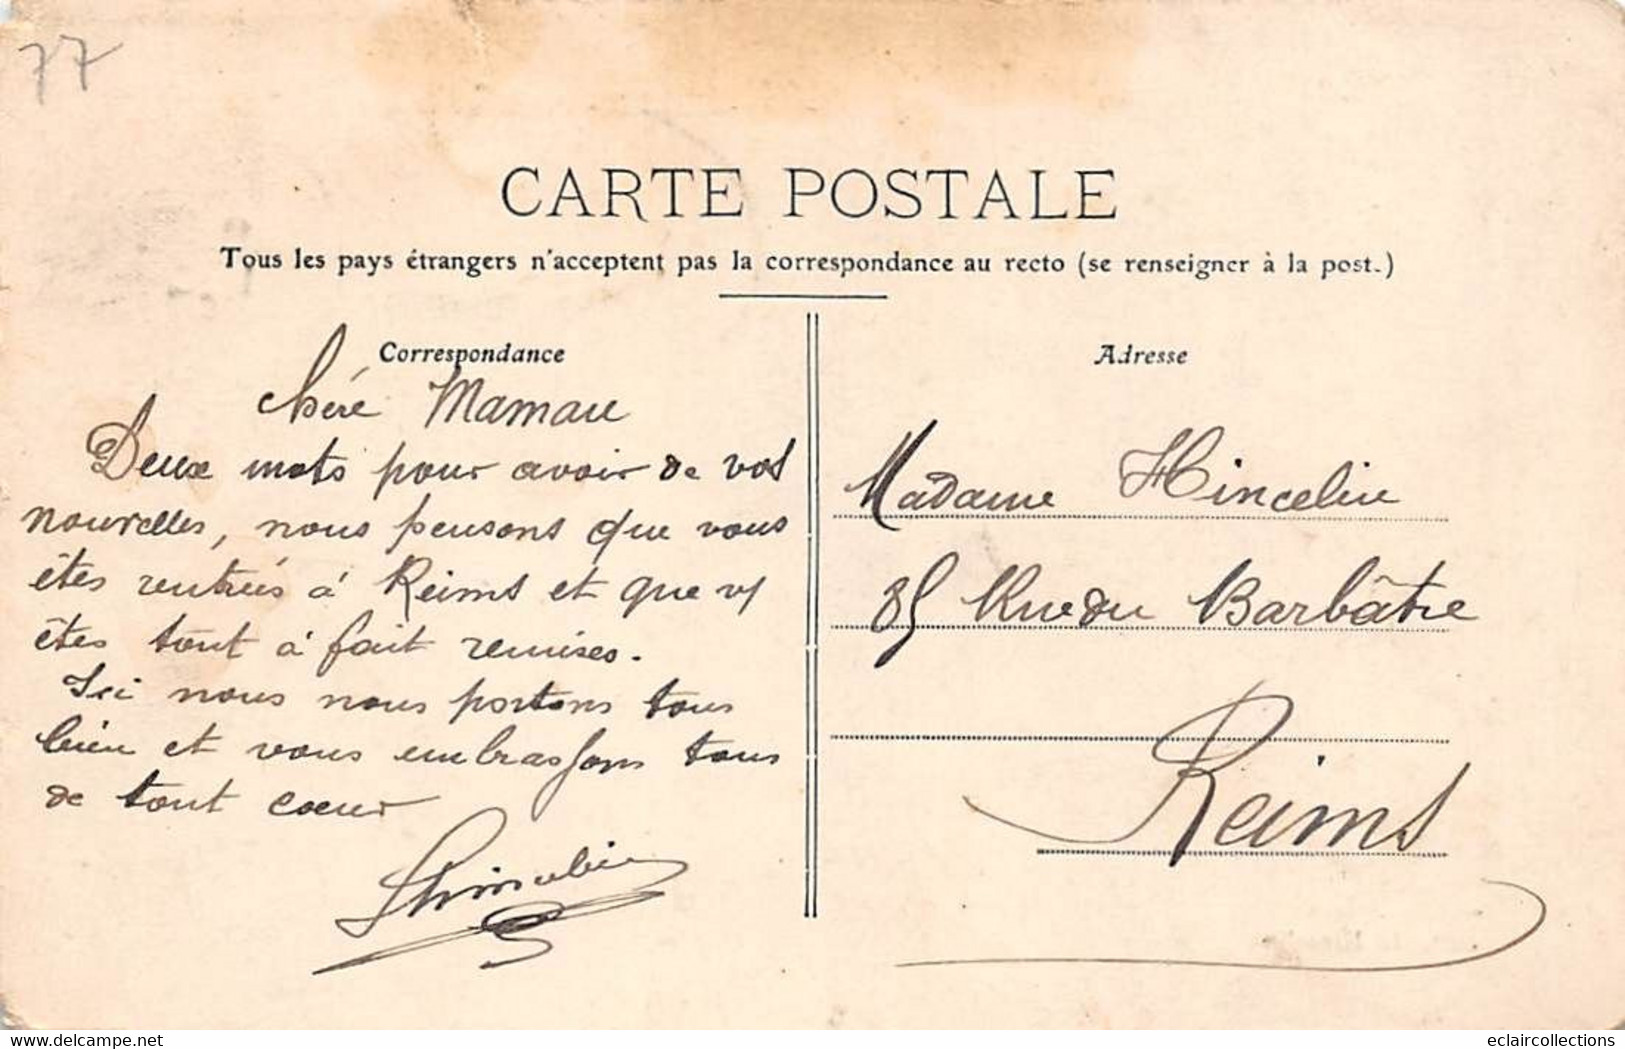 77
CARTE POSTALE
Tous les pays étrangers n'acceptent pas la correspondance au recto (se renseigner à la post.)
Correspondance
Chère Maman
Deux mots pour avoir de vos
nouvelles, nous pensons que vous
êtes rentrées à Reims et que vs
êtes tout à fait remises.
Ici nous nous portons tous
bien et vous embrassons tous
de tout coeur
Adresse
Madame Hincelin
85 Rue du Barbâtre
Reims
delcampe.net
eclaircollections